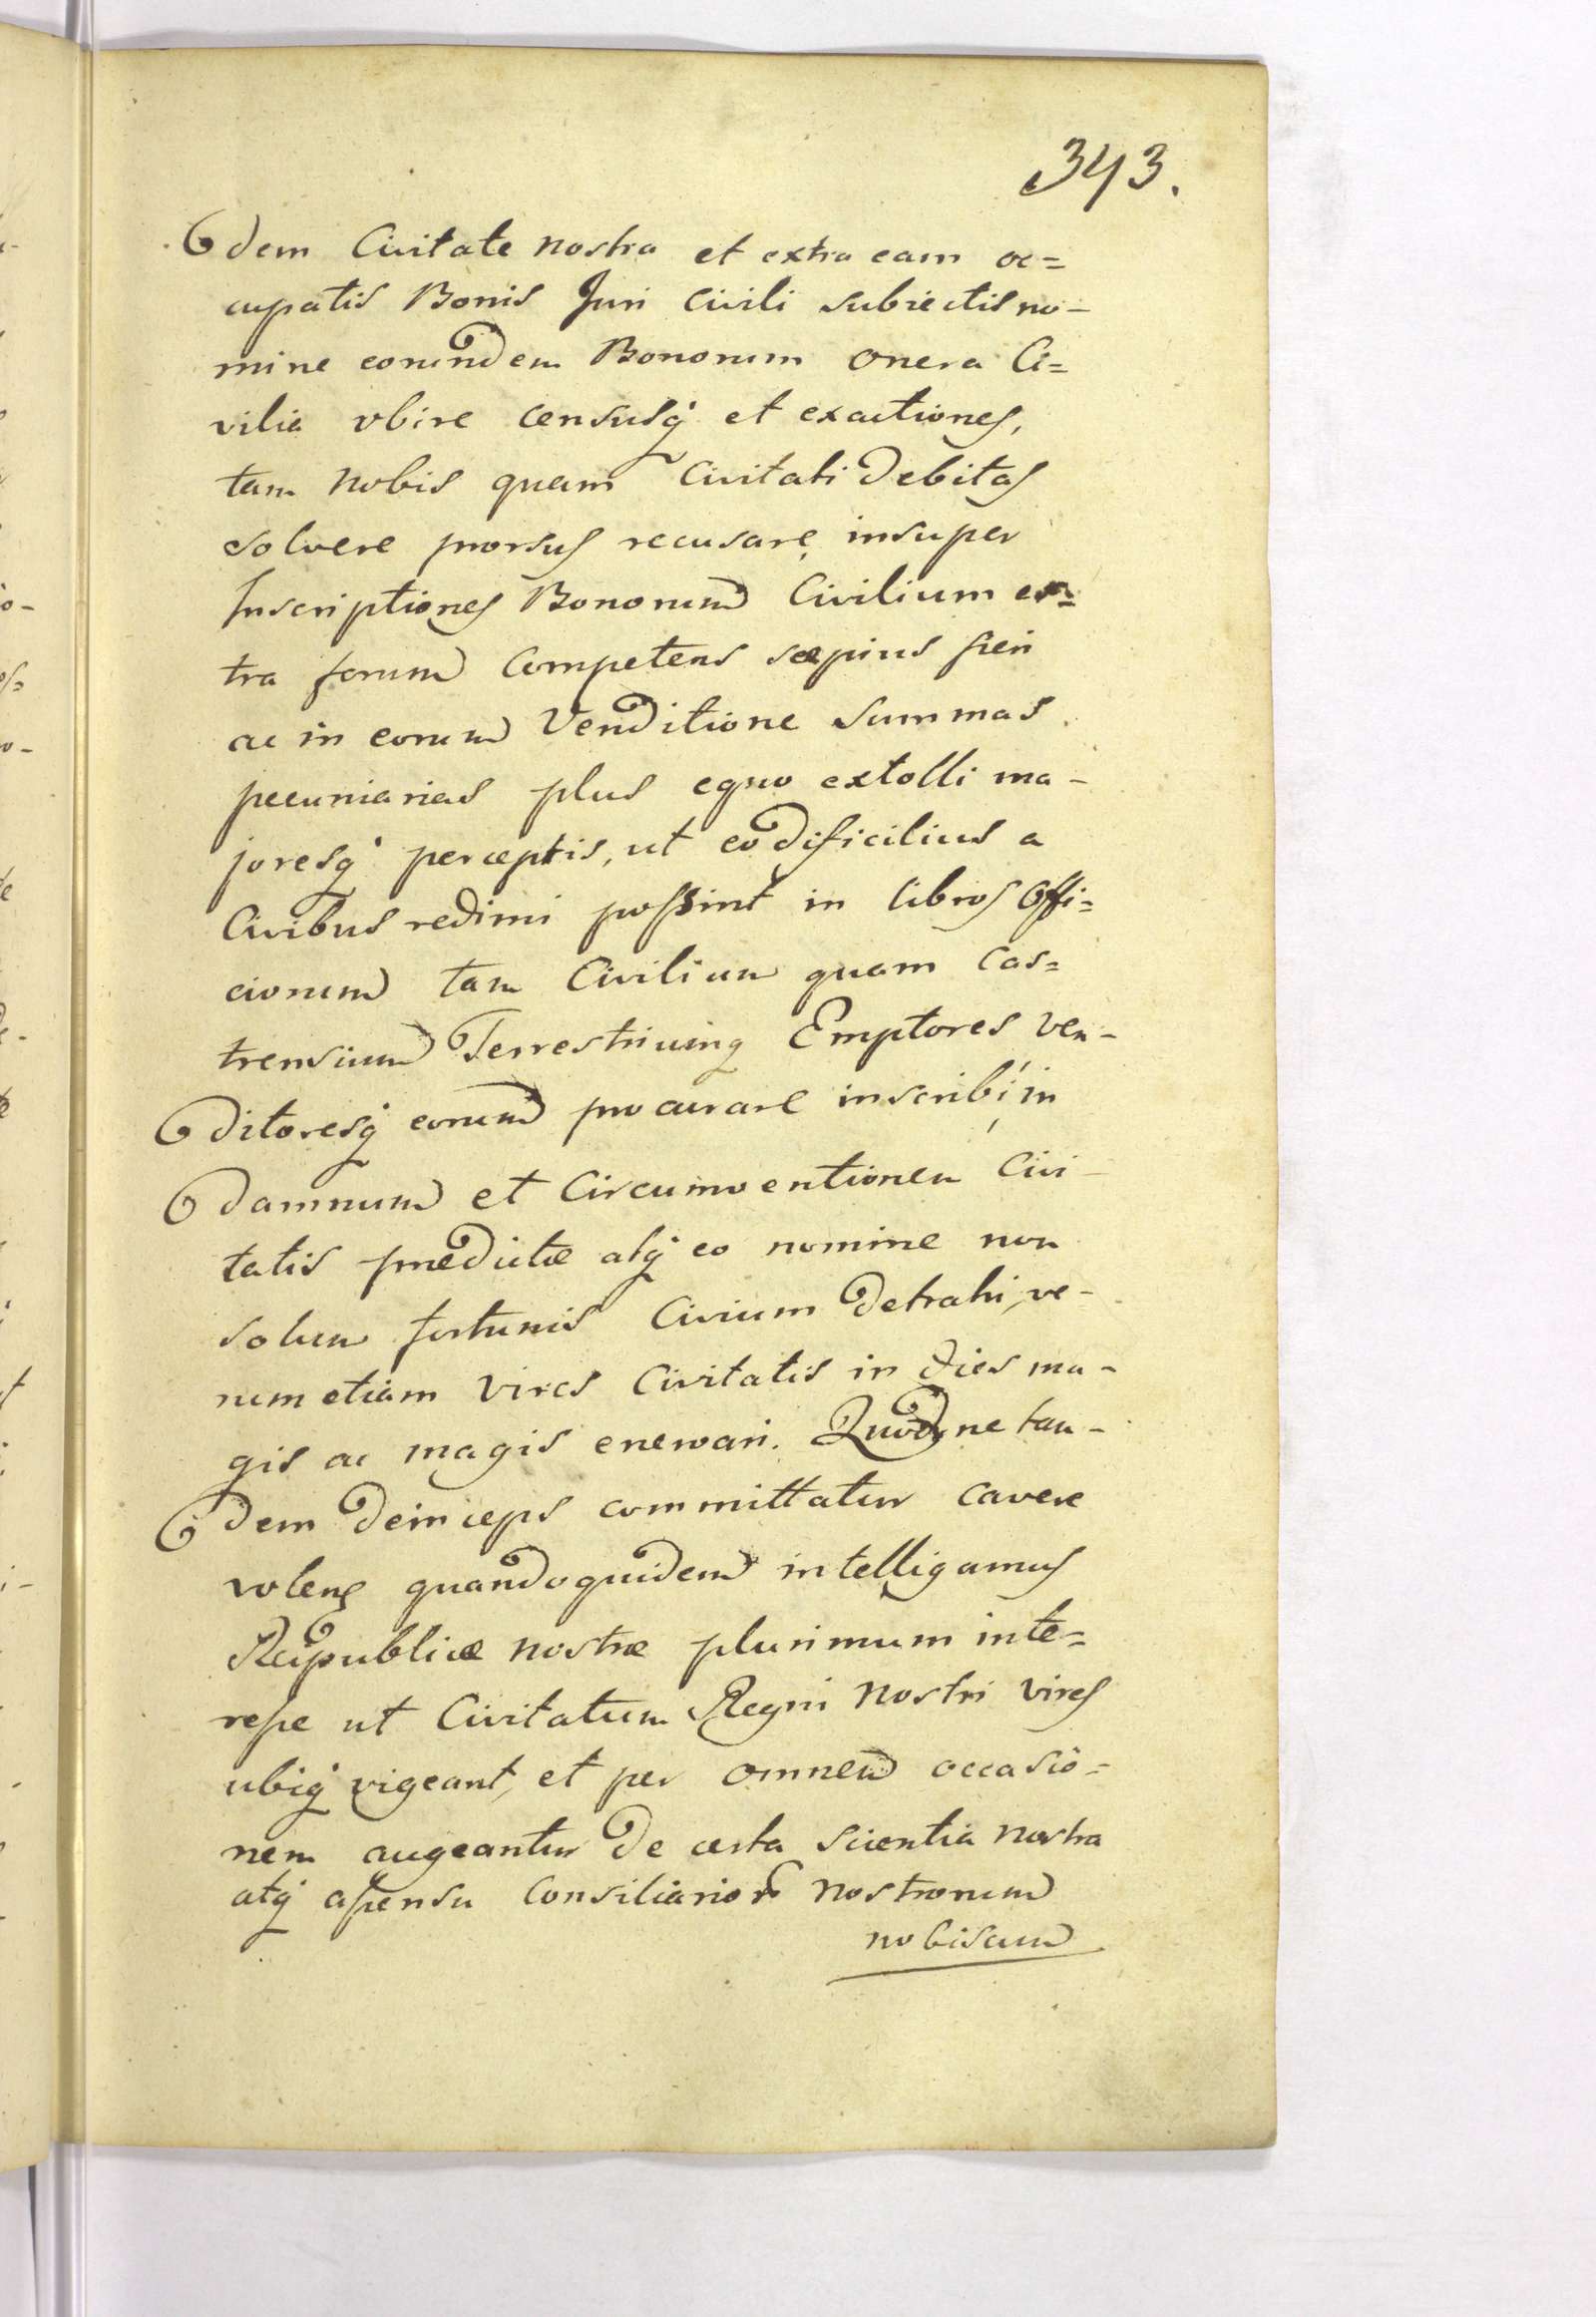 343.
dem Civitate nostra et extra eam oc=
cupatis Bonis Juri Civili subiectis no-
mine eorundem Bonorum onera Ci=
vilia obire censusq́ et exactiones,
tam nobis quam Civitati debitas
solvere prorsus recusare, insuper
Inscriptiones Bonorum Civilium ex=
tra forum Competens sæpius fieri
ac in eorum Venditione summas
pecuniarias plus equo extolli ma-
joresq́ perceptis, ut eo dificilius a
Civibus redimi possint in libros Offi=
ciorum tam Civilium quam Cas=
trensium Terrestriumq Emptores Ven-
ditoresq́ eorum procurare inscribi, in
damnum et Circumventionem Civi-
tatis prædictæ atq́ eo nomine non
solum fortunis Civium detrahi, ve-
rum etiam vires Civitatis in dies ma-
gis ac magis enervari. Quod ne tan-
dem deinceps committatur cavere
volens quandoquidem intelligamus
Reipublicæ nostræ plurimum inte=
resse ut Civitatum Regni Nostri vires
ubiq́ vigeant, et per omnem occasio=
nem augeantur de certa scientia nostra
atq́ assensu Consiliarior nostrorum
nobiscum